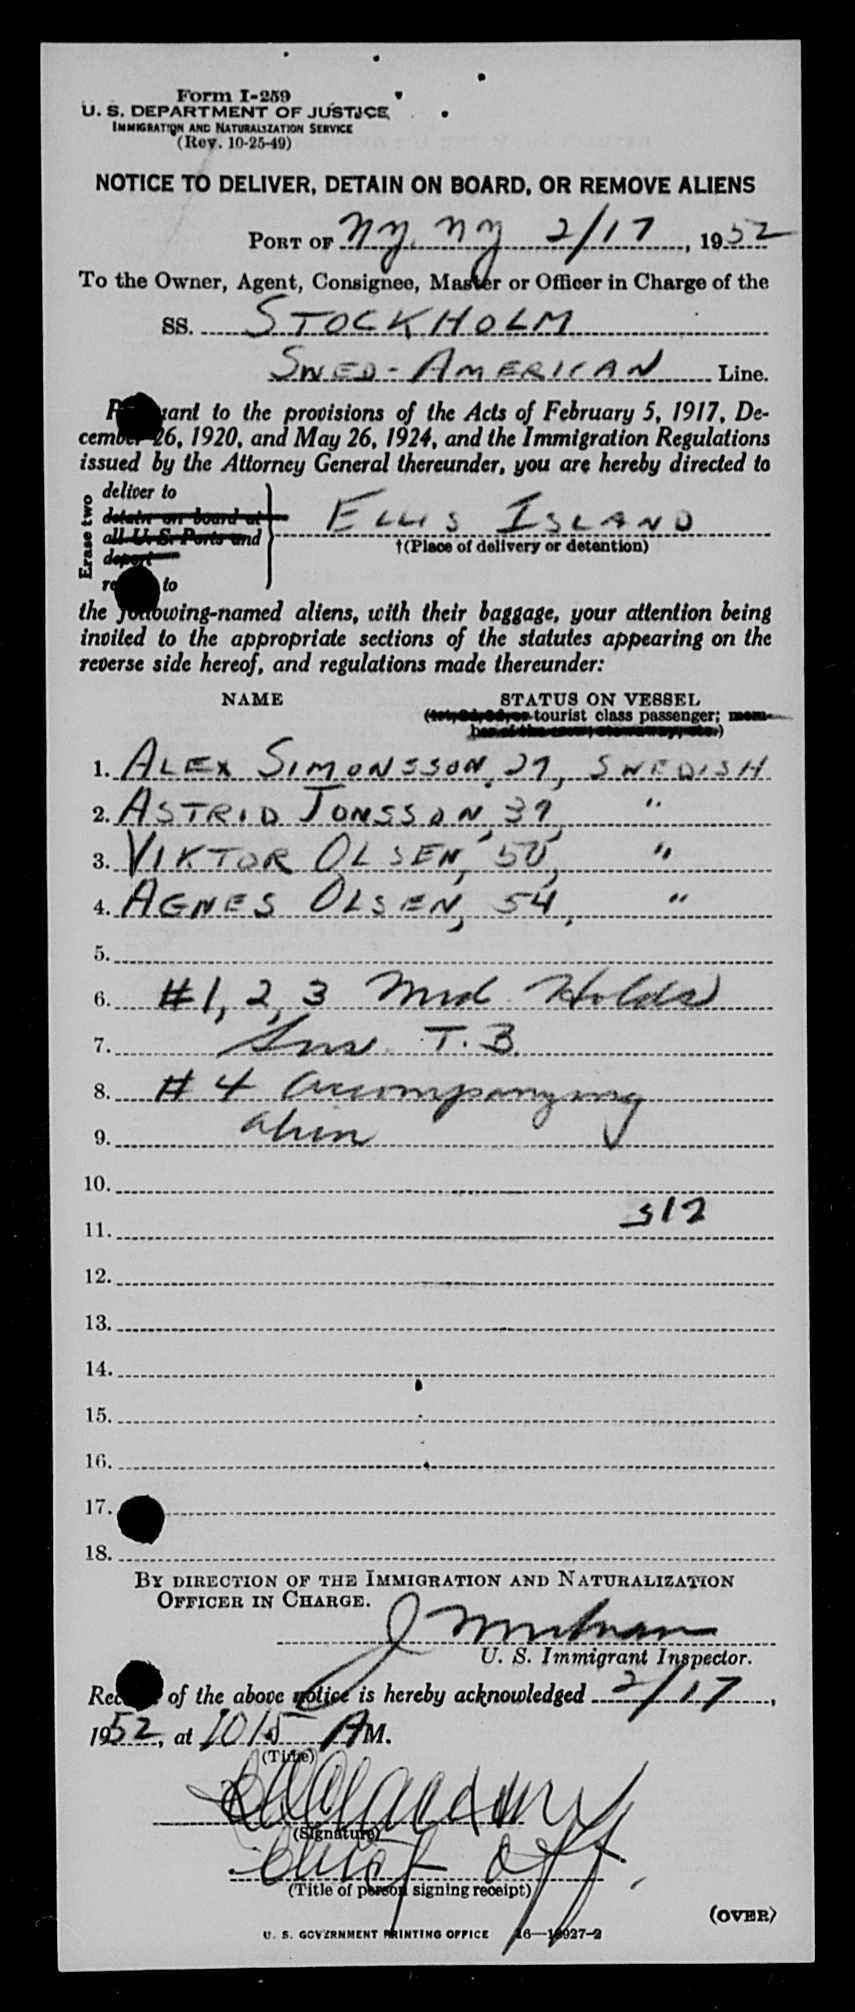 Form I-259
U. S. DEPARTMENT OF JUSTICE
IMMIGRATION AND NATURALIZATION SERVICE
(Rev. 10-25-49)
NOTICE TO DELIVER, DETAIN ON BOARD, OR REMOVE ALIENS
PORT OF NY, NY 2/17, 1952
To the Owner, Agent, Consignee, Master or Officer in Charge of the
SS. STOCKHOLM
SWED-AMERICAN Line.
Pursuant to the provisions of the Acts of February 5, 1917, De-
cember 26, 1920, and May 26, 1924, and the Immigration Regulations
issued by the Attorney General thereunder, you are hereby directed to
Erase two
deliver to
detain on board at
all U. S. Ports and
deport
to
ELLIS ISLAND
†(Place of delivery or detention)
the following-named aliens, with their baggage, your attention being
invited to the appropriate sections of the statutes appearing on the
reverse side hereof, and regulations made thereunder:
NAME STATUS ON VESSEL
(1st, 2d, 3d, or tourist class passenger; mem-
ber of the crew, stowaway, etc.)
1. ALEX SIMONSSON, 27, SWEDISH
2. ASTRID JONSSON, 37, "
3. VIKTOR OLSEN, 50, "
4. AGNES OLSEN, 54, "
5.
6. #1, 2, 3 Med. Holds
7. T.B.
8. #4 accompanying
9. alien
10.
312
11.
12.
13.
14.
15.
16.
17.
18.
BY DIRECTION OF THE IMMIGRATION AND NATURALIZATION
OFFICER IN CHARGE.
J
U. S. Immigrant Inspector.
Receipt of the above notice is hereby acknowledged 2/17,
1952, at 1015 AM.
(Title)
(Signature)
Chief Off.
(Title of person signing receipt)
(OVER)
U. S. GOVERNMENT PRINTING OFFICE 16—18927-2